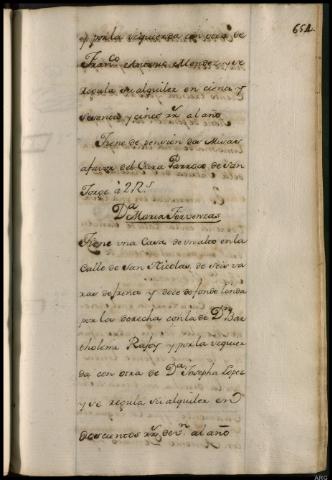 654
y por la yzquierda con otra de
Franco Antonio Mendez y se
regula su alquiler en ciento y
sesenta y cinco rs al año
Tiene de pension dos Misas
a favor del Cura Parroco de San
Jorge â 2 rs
Da Maria Torrenzas
Tiene vna Casa de vn alto en la
Calle de San Nicolas, de seis va
ras de frente y doce de fondo linda
por la derecha con la de Dn Bar
tholome Rajoy y por la yzquier
da con otra de Da Josepha Lopez
y se regula su alquiler en
Doscientos rs de vn al año
ARG